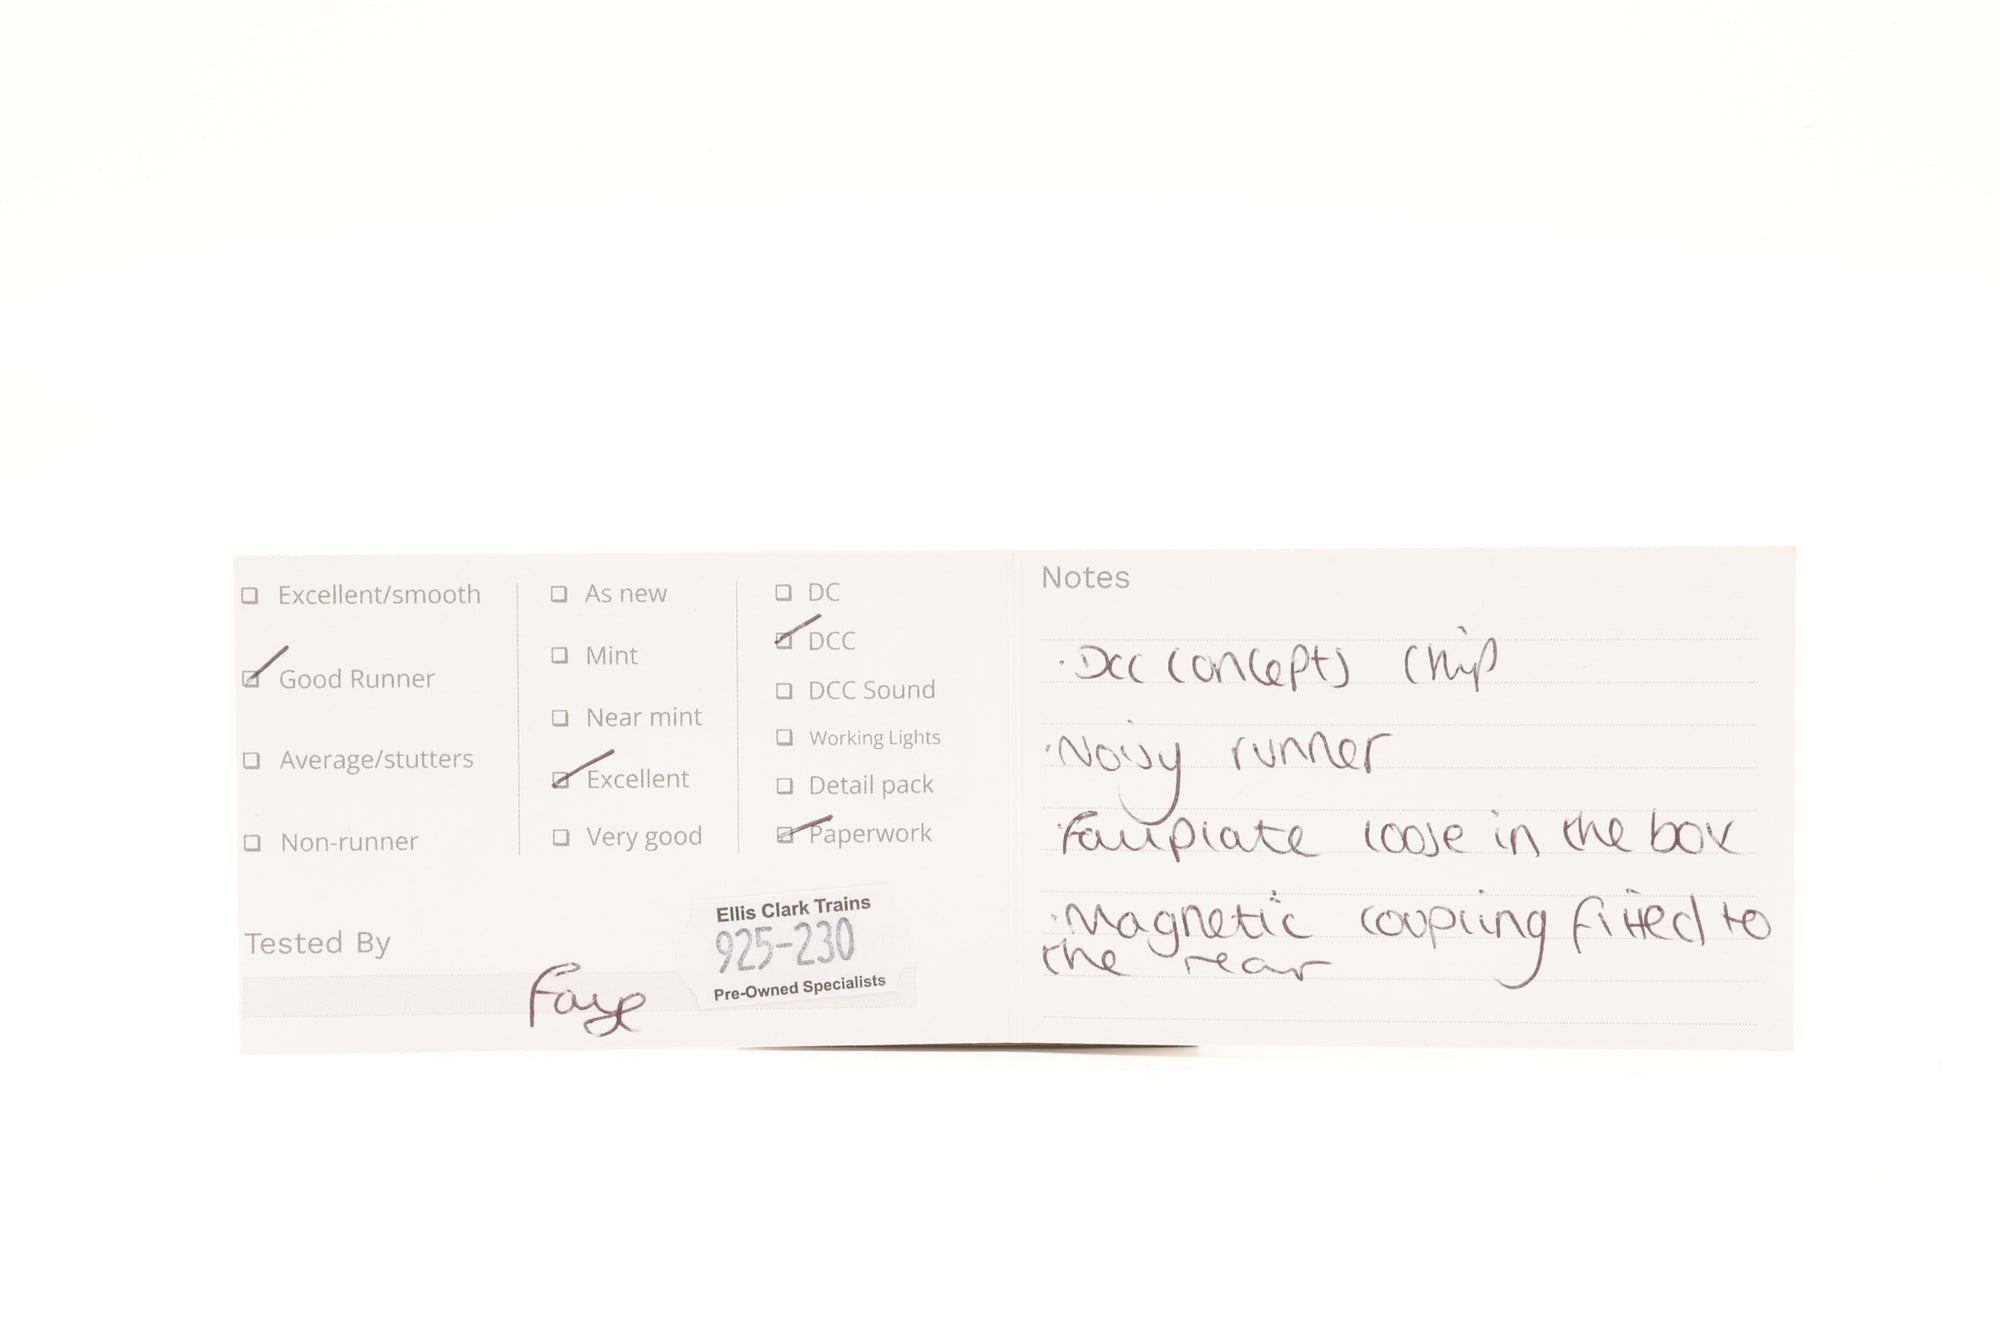 Excellent/smooth
Good Runner
Average/stutters
Non-runner
As new
Mint
Near mint
Excellent
Very good
DC
DCC
DCC Sound
Working Lights
Detail pack
Paperwork
Tested By
Faye
Ellis Clark Trains
925-230
Pre-Owned Specialists
Notes
·Dcc concepts chip
·Noisy runner
·Fallplate loose in the box
·Magnetic coupling fitted to
the rear